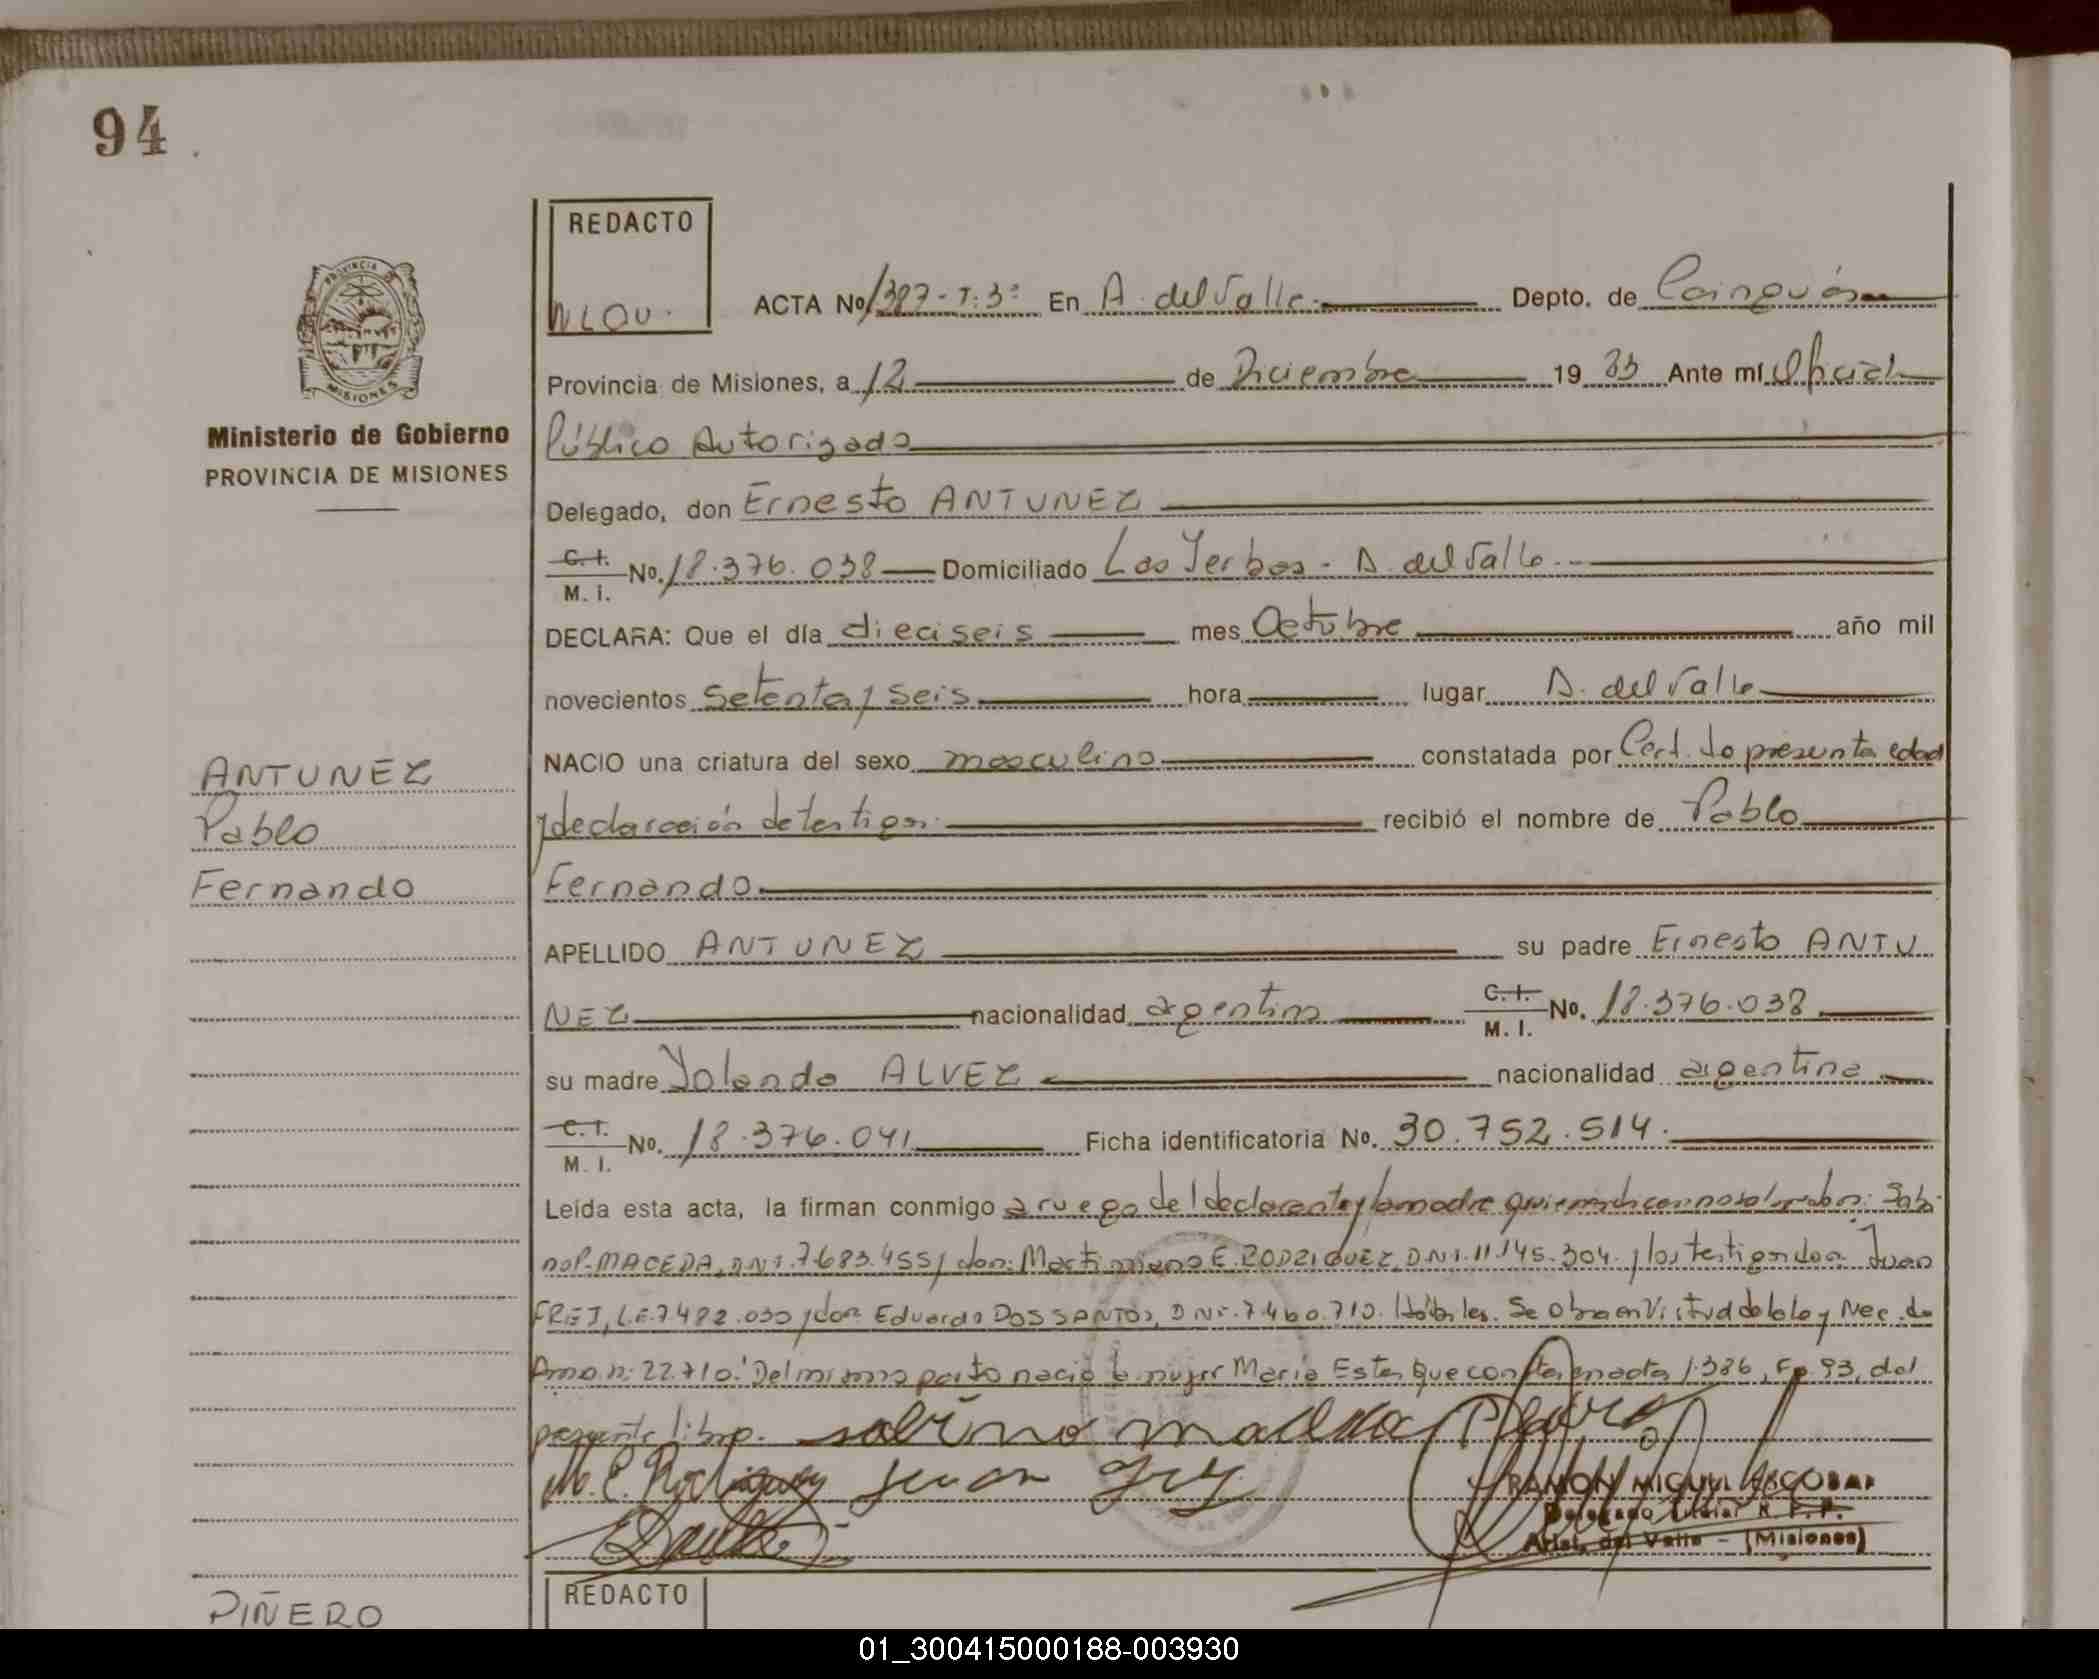 94
REDACTO
ACTA Nº 1387-T:3º En A. del Valle Depto. de Cainguás
Provincia de Misiones, a 12 de Diciembre 19 83 Ante mí Oficial
Público Autorizado
Ministerio de Gobierno
PROVINCIA DE MISIONES
Delegado, don Ernesto ANTUNEZ
C. I. M. i. Nº. 18.376.038 Domiciliado Las Yerbas - A. del Valle
DECLARA: Que el día dieciseis mes Octubre año mil
novecientos setenta y seis hora lugar A. del Valle
NACIO una criatura del sexo masculino constatada por Cert. de presunta edad
y declaración de testigos recibió el nombre de Pablo
Fernando
ANTUNEZ
Pablo
Fernando
APELLIDO ANTUNEZ su padre Ernesto ANTU
NEZ nacionalidad argentina C. I. M. I. Nº. 18.376.038
su madre Yolanda ALVEZ nacionalidad argentina
C. I. M. I. Nº. 18.376.041 Ficha identificatoria Nº. 30.752.514.
Leída esta acta, la firman conmigo a ruego del declarante y la madre quienes dicen no saber don: Sabi
no P. MACEDA, DNI. 7.683.455 y don: Martimiano E. RODRIGUEZ, DNI. 11.145.304. y los testigos don: Juan
FREJ, L.E. 7.482.030 y don Eduardo DOS SANTOS, DNI. 7.460.710. Hábiles. Se obra en Virtud de la ley Nac. de
Amn. n: 22.710. Del mismo parto nació la mujer María Ester que consta en acta 1.386, Fº 93, del
presente libro. sabino maceda
M. E. Rodriguez juan frey
RAMON MIGUEL ESCOBAR
Delegado Titular R. P. P.
Arist. del Valle - (Misiones)
REDACTO
PIÑERO
01_300415000188-003930